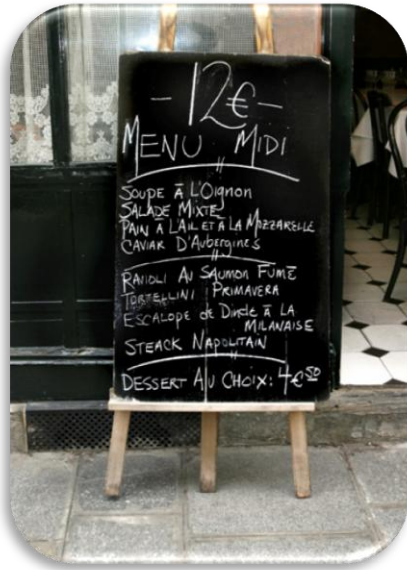 - 12€ -
MENU MIDI
SOUPE À L'OIGNON
SALADE MIXTE
PAIN À L'AIL ET À LA MOZZARELLE
CAVIAR D'AUBERGINES
RAVIOLI AU SAUMON FUMÉ
TORTELLINI PRIMAVERA
ESCALOPE de DINDE À LA
MILANAISE
STEACK NAPOLITAIN
DESSERT AU CHOIX: 4€50